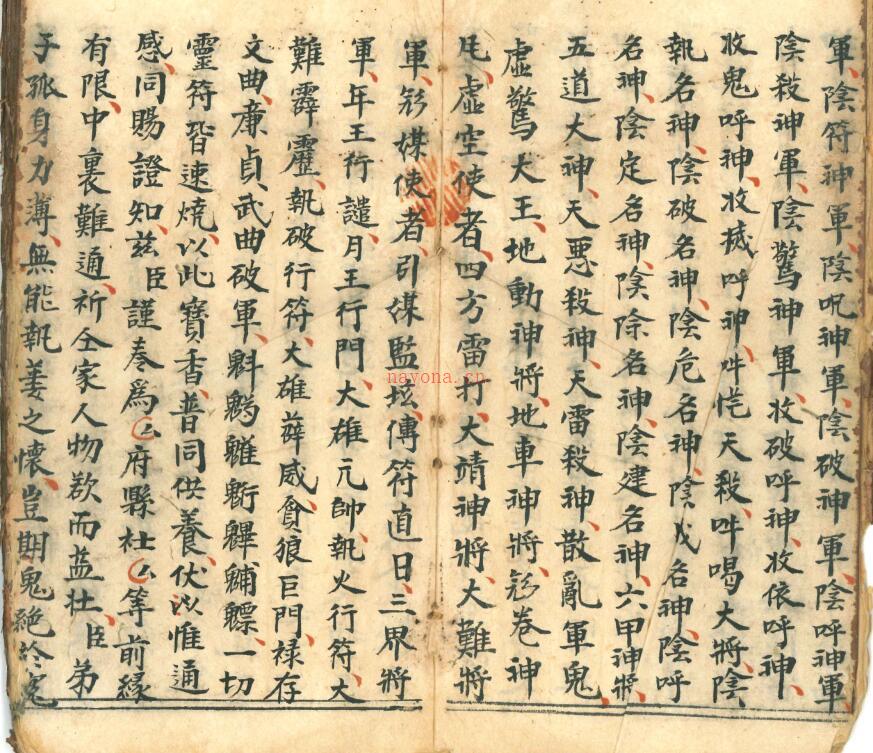 軍陰符神軍陰呪神軍陰破神軍陰呼神軍
陰殺神軍陰驚神軍收破呼神收依呼神
收鬼呼神收械呼神吽悗天殺吽喝大將陰
執名神陰破名神陰危名神陰成名神陰呼
名神陰定名神陰除名神陰建名神六甲神將
五道大神天惡殺神天雷殺神散亂軍鬼
虛驚大王地動神將地車神將彩卷神
虛空使者四方雷打大靖神將大難將
軍彩媒使者引媒監壇傳符直日三界將
軍年王行譴月王行門大雄元帥執火行符大
難霹靂執破行符大雄薛咸貪狼巨門祿存
文曲廉貞武曲破軍魁一切
靈符皆速燒以此寶香普同供養伏以惟通
感同賜證知兹臣謹奏爲厶府縣社厶等前緣
有限中裏難通祈仝家人物歆而益壮臣弟
子孤身力薄無能執姜之懷豈期鬼絶於冤
nayona.cn